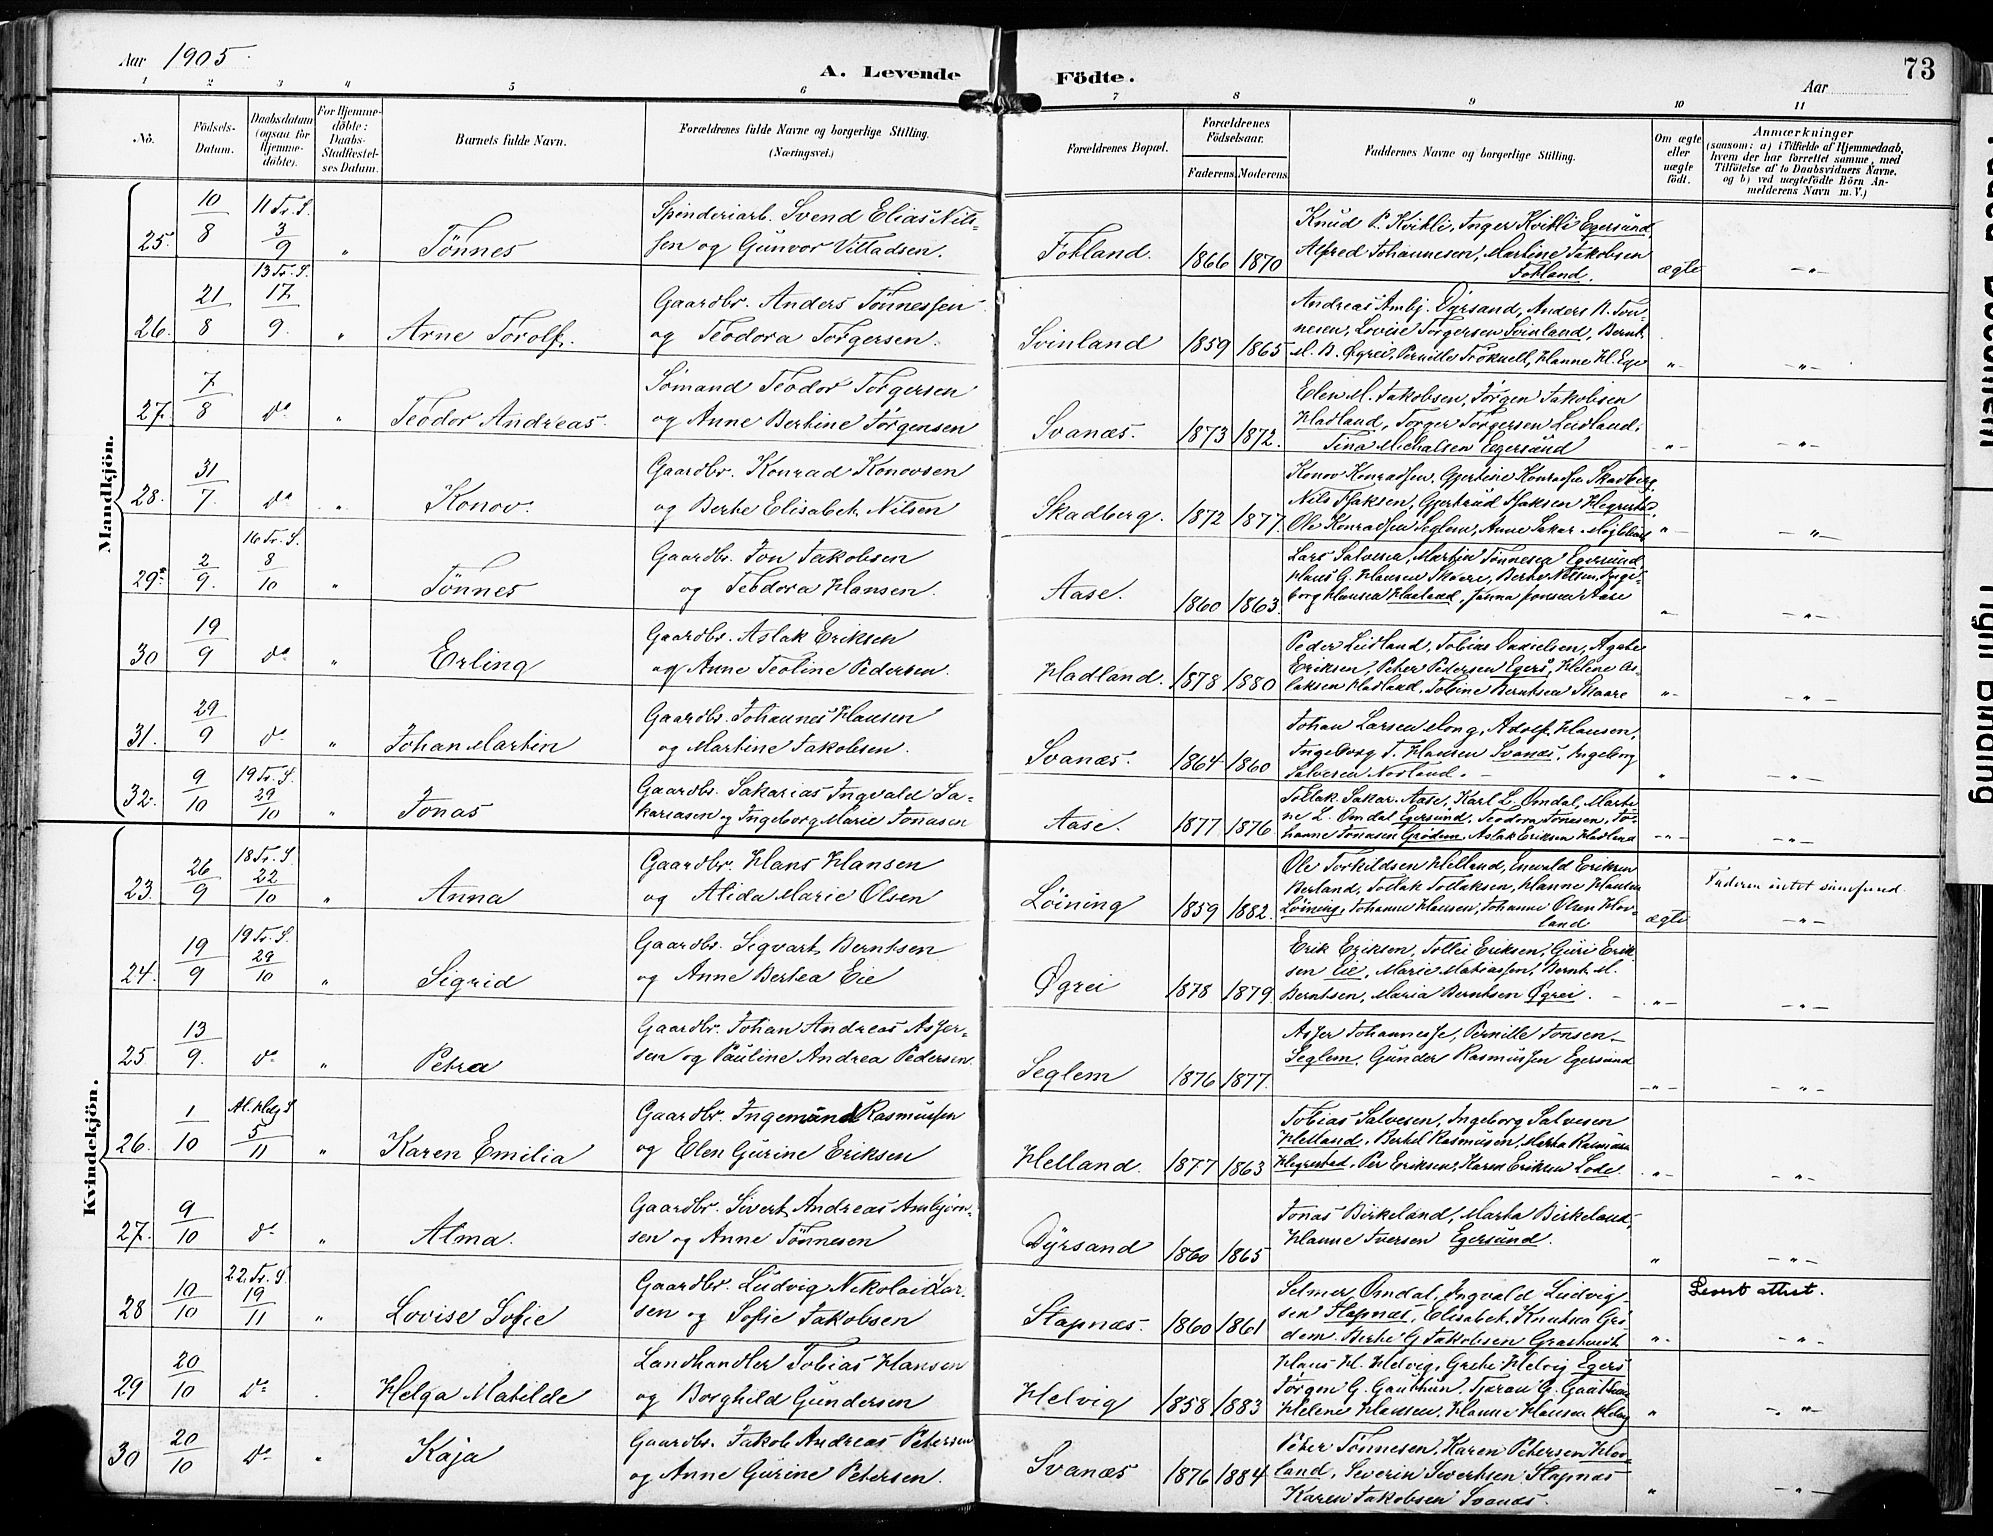 Aar 1905.
A. Levende Födte.
73
Aar
1 2 3 4 5 6 7 8 9 10 11
No.
Födsels-Datum.
Daabsdatum (ogsaa for Hjemmedöbte).
For Hjemmedöbte: Daabs-Stadfæstelses Datum.
Barnets fulde Navn.
Forældrenes fulde Navne og borgerlige Stilling. (Næringsvei.)
Forældrenes Bopæl.
Forældrenes Födselsaar.
Faderens. Moderens.
Faddernes Navne og borgerlige Stilling.
Om ægte eller uægte födt.
Anmærkninger
(saasom: a) i Tilfælde af Hjemmedaab, hvem der har forrettet samme, med Tilföielse af to Daabsvidners Navne, og b) ved uægtefödte Börn Anmelderens Navn m. V.)
Mandkjön.
25. 10/8 11 Tr. S. 3/9 " Tönnes
Spinderiarb. Svend Elias Nilssen og Gunvor Vitladsen.
Fotland. 1866 1870
Knud P. Kvikli, Inger Kvikli Egersund,
Alfred Johannesen, Martine Jakobsen
Fotland. ægte -"-
26. 21/8 13 Tr. S. 17/9. " Arne Torolf.
Gaardbr. Anders Tönnessen
og Teodora Torgersen.
Svinland 1859 1865
Andreas Ambj. Dyrsand, Anders N. Tönnesen, Lovise Torgersen Svinland, Bernt
M. B. Øgrei, Pernille, Hanne H. Ege "- -"-
27. 7/8 do " Teodor Andreas.
Sömand Teodor Torgersen
og Anne Bertine Jörgensen
Svanæs. 1873 1872.
Elen M. Jakobsen, Jörgen Jakobsen
Hadland, Torger Torgersen Lidland,
Tina Michalsen Egersund "- -"-
28. 31/7. do " Konov.
Gaardbr. Konrad Konovsen
og Berte Elisabet Nilsen
Skadberg. 1872 1877.
Konov Konradsen, Gjertine Konradsen Skadberg,
Nils Isaksen, Gjertrud Isaksen Hegrestad,
Ole Konradsen Seglem, Anne Sakar. "- -"-
29. 2/9. 16 Tr. S. 8/10 " Tönnes
Gaardbr. Jon Jakobsen
og Teodora Hansen.
Aase. 1860 1863.
Lars Salvesen, Martin Tönnesen Egersund,
Hans G. Hansen Skaare, Berte Nilsen, Ingeborg Hansen Hadland, Janna Jonsen Aase "- -"-
30 19/9 do " Erling
Gaardbr. Aslak Eriksen
og Anne Teoline Pedersen.
Hadland. 1878 1880
Peder Lidland, Tobias Danielsen, Agate
Eriksen, Peter Pedersen Egers, Helene Aslaksen Hadland, Tobine Berntsen Skaare "- -"-
31. 29/9 do " Johan Martin
Gaardbr. Johannes Hansen
og Martine Jakobsen.
Svanæs. 1864 1860
Johan Larsen Mong, Adolf Hansen,
Ingeborg T. Hansen Svanæs, Ingeborg
Salvesen Nodland. - " -"-
32. 9/10 19 Tr. S. 29/10 " Jonas
Gaardbr. Sakarias Ingvald Sakariasen og Ingeborg Marie Jonasen
Aase. 1877 1876
Tollak Sakar. Aase, Karl L. Omdal, Martine L. Omdal Egersund, Teodora Jonesen, Johanne Jonasen Grödem, Aslak Eriksen Hadland -"- -"-
Kvindekjön.
23. 26/9 18 Tr. S. 22/10 " Anna
Gaardbr. Hans Hansen
og Alida Marie Olsen
Löining 1859 1882.
Ole Torkildsen Helland, Enevald Eriksen
Berland, Tollak Tollaksen, Hanne Hansen
Löining, Johanne Hansen, Johanne Olsen Hovland ægte
Faderen intet samfund. -"-
24. 19/9 19 Tr. S. 29/10 " Sigrid
Gaardbr. Segvart Berntsen
og Anne Bertea Eie
Øgrei 1878 1879
Erik Eriksen, Tollei Eriksen, Guri Eriksen Eie, Marie Matiassen, Bernt M.
Berntsen, Maria Berntsen Øgrei. - "- -"-
25 13/9. do " Petra
Gaardbr. Johan Andreas Assersen og Pauline Andrea Pedersen.
Seglem 1876 1877.
Asser Johannesse, Pernille Jonsen
Seglem, Gunder Rasmussen Egersund -"- -"-
26. 1/10 Al. Helg. S. 5/11 " Karen Emilia
Gaardbr. Ingemund Rasmussen
og Elen Gurine Eriksen
Helland. 1877 1863
Tobias Salvesen, Ingeborg Salvesen
Helland, Bertel Rasmussen, Marta Rasmussen
Hegrestad, Per Eriksen, Karen Eriksen Lode. "- -"-
27. 9/10 do " Alma.
Gaardbr. Sivert Andreas Ambjörnsen og Anne Tönnesen
Dyrsand 1860 1865
Jonas Birkeland, Marta Birkeland,
Hanne Iversen Egersund. " -"-
28 10/10 22. Tr. S. 19/11 " Lovise Sofie
Gaardbr. Ludvig Nikolai Larsen og Sofie Jakobsen
Stapnæs. 1860 1861
Selmer Omdal, Ingvald Ludvigsen Stapnæs, Elisabet Knutsen Grödem, Berte G. Jakobsen "-
Levert attest. -"-
29 20/10 do . Helga Matilde
Landhandler Tobias Hansen
og Borghild Gundersen
Helvig 1858 1883
Hans H. Helvig, Grete Helvig Egers
Jörgen G. Gauthun, Tjeran G. Gauthun
Helene Hansen, Hanne Hansen Helvig " -"-
30 20/10 do " Kaja
Gaardbr. Jakob Andreas Petersen
og Anne Gurine Petersen.
Svanæs 1876 1884
Peter Tönnesen, Karen Petersen Hovland, Severin Sivertsen Stapnæs
Karen Jakobsen Svanæs. " -"-